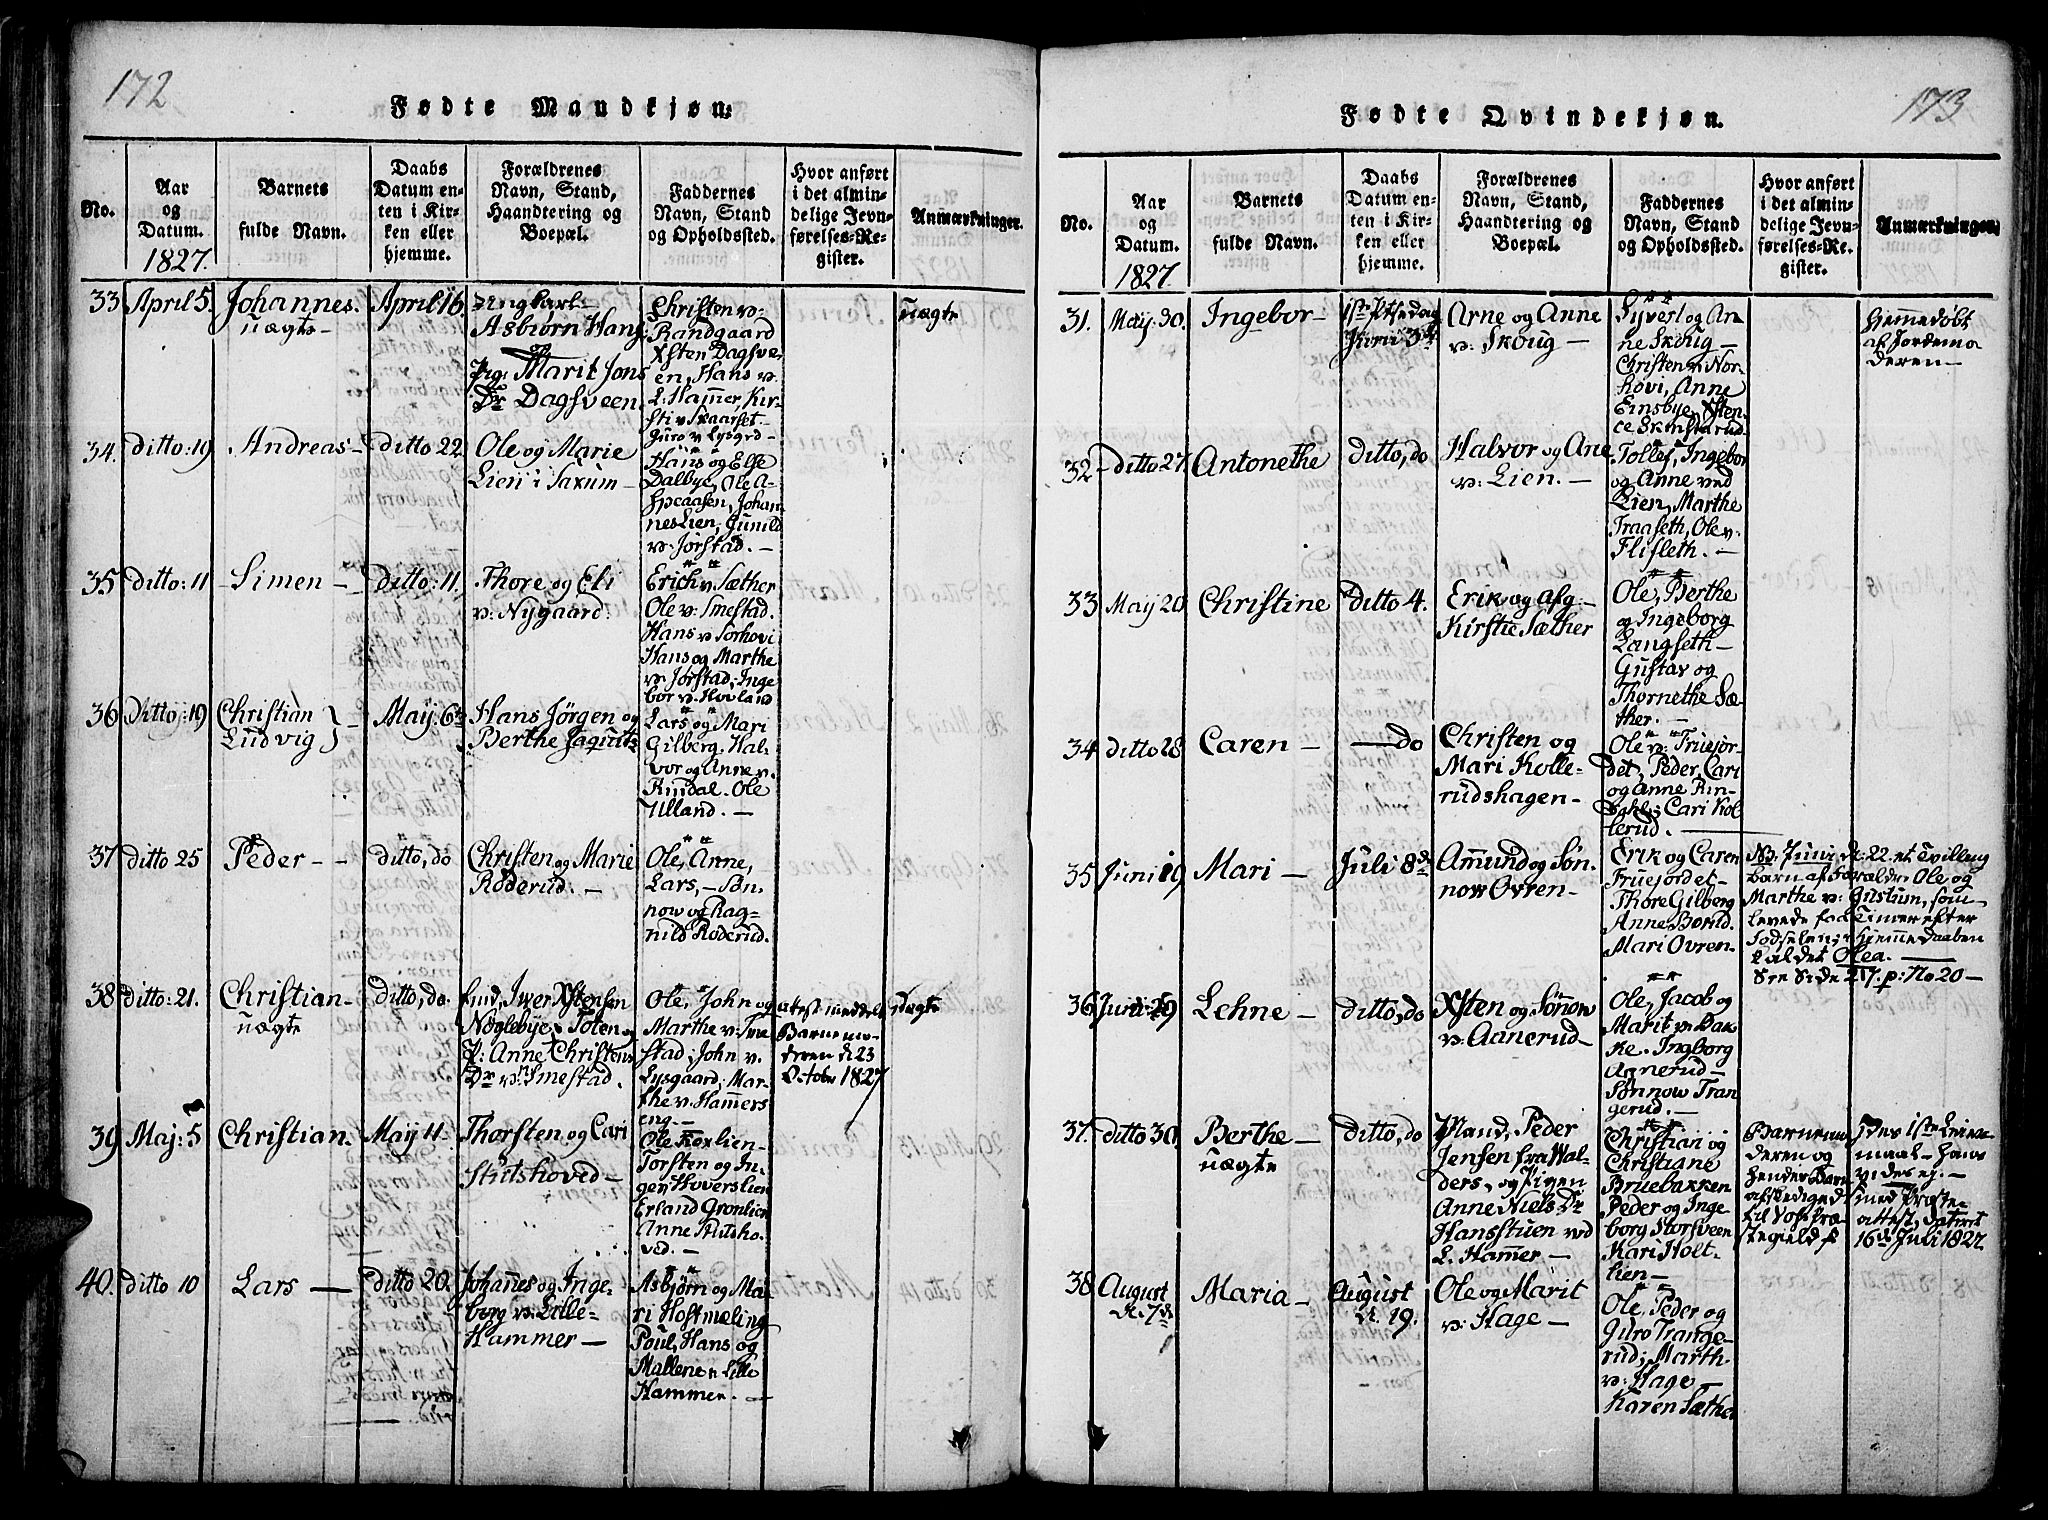 172
Fødte Mandkjøn.
No.
Aar
og
Datum.
1827.
Barnets
fulde Navn.
Daabs
Datum en-
ten i Kir-
ken eller
hjemme.
Forældrenes
Navn, Stand,
Haandtering og
Boepæl.
Faddernes
Navn, Stand
og Opholdssted.
Hvor anført
i det almin-
delige Jevn-
førelses-Re-
gister.
Anmærkninger.
33
April 5.
Johannes.
uægte
April 16.
Ungkarl
Asbiørn Hans
Pig: Marit Jons
Dr Dagsveen.
Christen v:
Randgaard
Xsten Dagsve-
en, Hans v.
L. Hamer, Kir-
sti v Skaarset.
Guro v Lysgrd
uægte
34.
ditto: 19
Andreas
ditto 22
Ole og Marie
Lien i Saxum
Hans og Else
Dalbye, Ole A-
Johan-
nes Lien, Gunild
v: Jørstad.
35
ditto: 11
Simen
ditto: 11.
Thore og Eli
v: Nygaard:
Erich v. Sæther
Ole v: Smestad.
Hans v Sorhovi
Hans og Marthe
v: Jørstad; Inge
bor v. Hovland
36
Ditto: 19
Christian
Ludvig
May. 6te
Hans Jørgen og
Berthe
Lars og Mari
Gilberg, Hal-
vor og Anne v.
Rindal. Ole
Ulland.
37
ditto 25
Peder
ditto, do
Christen og Marie
Roderud.
Ole, Anne,
Lars, Søn-
now og Rag-
nild Roderud.
38
ditto: 21.
Christian
uægte
ditto, do.
Iwer Xstensen
Noglebye, Toten og
P: Anne Christens
Dr v: Smestad.
Ole, John og
Marthe v: Sme
stad; John v.
Lysgaard; Mar-
the v: Hammers
eng.
atest meddelt
Barnemo-
deren d 23
Octobr 1827
uægte
39
Maj: 5
Christian.
May 11.
Thorsten og Cari
Stutshoved
Ole Koxlien
Torsten og In-
ger Hoverslien
Erland Gronlien
Anne Stutsho-
ved.
40.
ditto 10
Lars
ditto 20.
Johanes og Inge-
borg v: Lille-
Hammer
Asbjørn og Ma-
ri Hostmæling
Poul, Hans og
Mallene v Lille
Hammer.
173
Fødte Qvindekjøn.
No.
Aar
og
Datum.
1827.
Barnets
fulde Navn.
Daabs
Datum en-
ten i Kir-
ken eller
hjemme.
Forældrenes
Navn, Stand,
Haandtering og
Boepæl.
Faddernes
Navn, Stand
og Opholdssted.
Hvor anført
i det almin-
delige Jevn-
førelses-Re-
gister.
Anmærkninger.
31.
May. 30.
Ingebor
1ste Ptsedag
Juni 3d
Arne og Anne
v: Skoug
Syverl og An-
ne Skoug
Christen v Nor-
hovi, Anne
Einsbye, Xsten-
ce Skinstarud
Hiemmedøbt
af Jordemo
deren
32
Ditto 27.
Antonethe
ditto, do
Halvor og Ane
v: Lien.
Tollef, Ingebor
og Anne ved
Lien, Marthe
Traaseth, Ole v.
Flisleth.
33
May 20.
Christine
ditto 4.
Erik og Afg:
Kirstie Sæther
Ole, Berthe
og Ingeborg
Langseth
Gustav og
Thornethe Sæ-
ther.
34
ditto 28.
Caren
do
Christen og
Mari Kolle-
rudshagen
Ole v: Fruejor-
det, Peder, Cari
og Anne Rin-
Cari Kol
lerud.
35
Juni 19
Mari
Juli 8de
Amund og Søn-
now Ovren
Erik og Caren
Fruejordet
Thore Gilberg
Anne Borud.
Mari Ovren
NB. Juni d: 22. et Tvilling
barn af Forældre Ole og
Marthe v: Gustum, som
levede faa Timer efter
Fodselen; i hjemme daaben
kaldet Olea.
See Side 217. p: No 20
36
Juni: 29
Lehne
ditto, do
Xsten og Sønow
v: Aanerud
Ole, Jacob og
Marit v: Bak-
ke. Ingborg
Aanerud
Sønnow Tran
gerud.
37.
ditto 30.
Berthe
uægte
ditto, do
Mand, Peder
Jensen fra Wal-
ders, og Pigen
Anne Niels Dr
Hansstuen ved
L. Hammer
Christian og
Christiane
Bruebakken
Peder og Inge
borg Storsveen
Kari Holt-
lien
Barnemo
deren og
hendes Barn
afskediged
til Vos Præ
stegield
f des 1ste Leier-
maal Hans
vides ej.
med Præste
attest, dateret
16de Juli 1827.
38
August
d. 7de
Maria
August
d. 19.
Ole og Marit
v: Hage
Ole, Peder og
Guro Trange-
rud; Marth
v: Hage
Karen Sæther